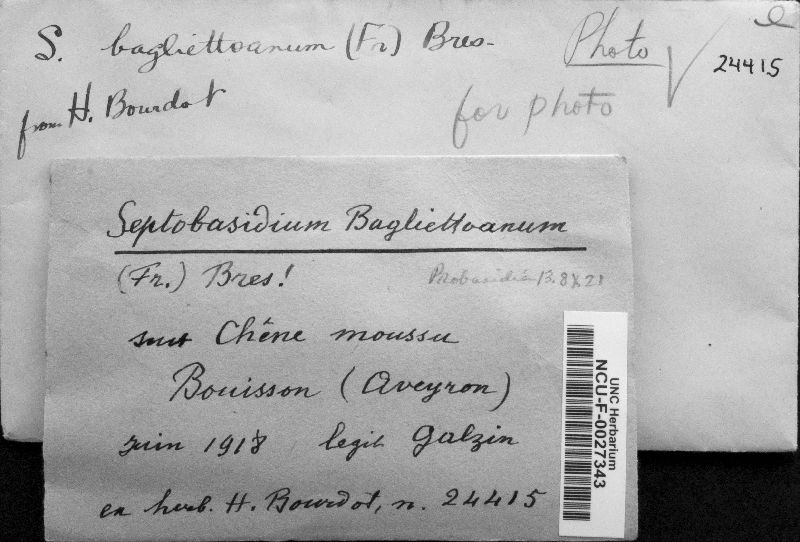 S. bagliettoanum (Fr) Bres-
Photo
24415
from H. Bourdot
for photo
Septobasidium Bagliettoanum
(Fr.) Bres!
13.8X21
sur Chêne moussu
Bouisson (Aveyron)
juin 1918 legit Galzin
ex herb. H. Bourdot, n. 24415
UNC Herbarium
NCU-F-0027343